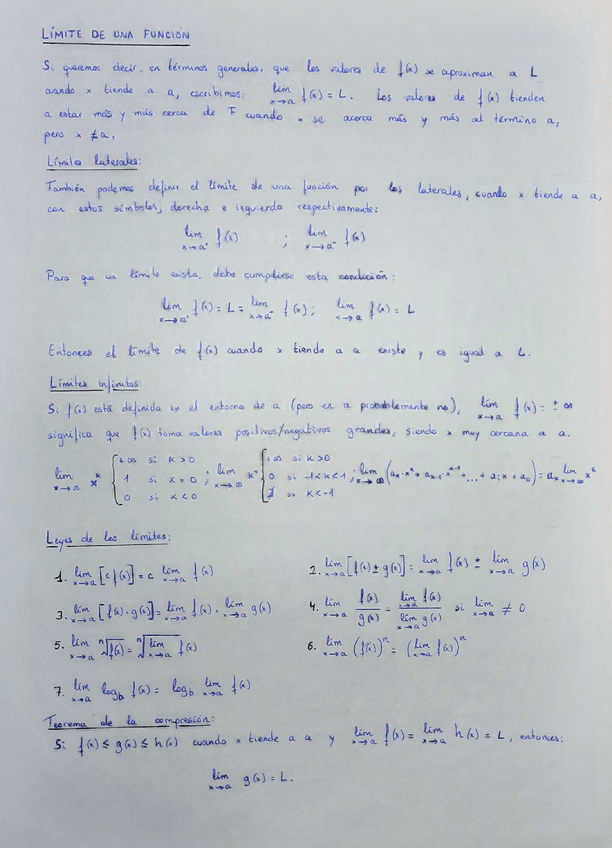 LÍMITE DE UNA FUNCIÓN
Si queremos decir, en términos generales, que los valores de f(x) se aproximan a L
cuando x tiende a a, escribimos: lím x→a f(x) = L. Los valores de f(x) tienden
a estar más y más cerca de F cuando x se acerca más y más al término a,
pero x ≠ a.
Límites laterales:
También podemos definir el límite de una función por los laterales, cuando x tiende a a,
con estos símbolos, derecha e izquierda respectivamente:
lím x→a⁺ f(x) ; lím x→a⁻ f(x)
Para que un límite exista, debe cumplirse esta condición:
lím x→a⁺ f(x) = L = lím x→a⁻ f(x); lím x→a f(x) = L
Entonces el límite de f(x) cuando x tiende a a existe y es igual a L.
Límites infinitos:
Si f(x) está definida en el entorno de a (pero en a probablemente no), lím x→a f(x) = ± ∞
significa que f(x) toma valores positivos/negativos grandes, siendo x muy cercana a a.
lím x→∞ xᴷ { +∞ si K>0 ; 1 si K=0 ; 0 si K<0 ; lím x→∞ Kˣ { +∞ si K>0 ; 0 si -1<K<1 ; ∄ si K<-1 ; lím x→∞ (aₖ·xᴷ + aₖ₋₁·xᴷ⁻¹ + ... + a₁x + a₀) = aₖ lím x→∞ xᴷ
Leyes de los límites:
1. lím x→a [c f(x)] = c lím x→a f(x)
2. lím x→a [f(x) ± g(x)] = lím x→a f(x) ± lím x→a g(x)
3. lím x→a [f(x) · g(x)] = lím x→a f(x) · lím x→a g(x)
4. lím x→a f(x)/g(x) = lím x→a f(x) / lím x→a g(x) si lím x→a ≠ 0
5. lím x→a ⁿ√f(x) = ⁿ√lím x→a f(x)
6. lím x→a (f(x))ⁿ = (lím x→a f(x))ⁿ
7. lím x→a log_b f(x) = log_b lím x→a f(x)
Teorema de la compresión:
Si f(x) ≤ g(x) ≤ h(x) cuando x tiende a a y lím x→a f(x) = lím x→a h(x) = L, entonces:
lím x→a g(x) = L.